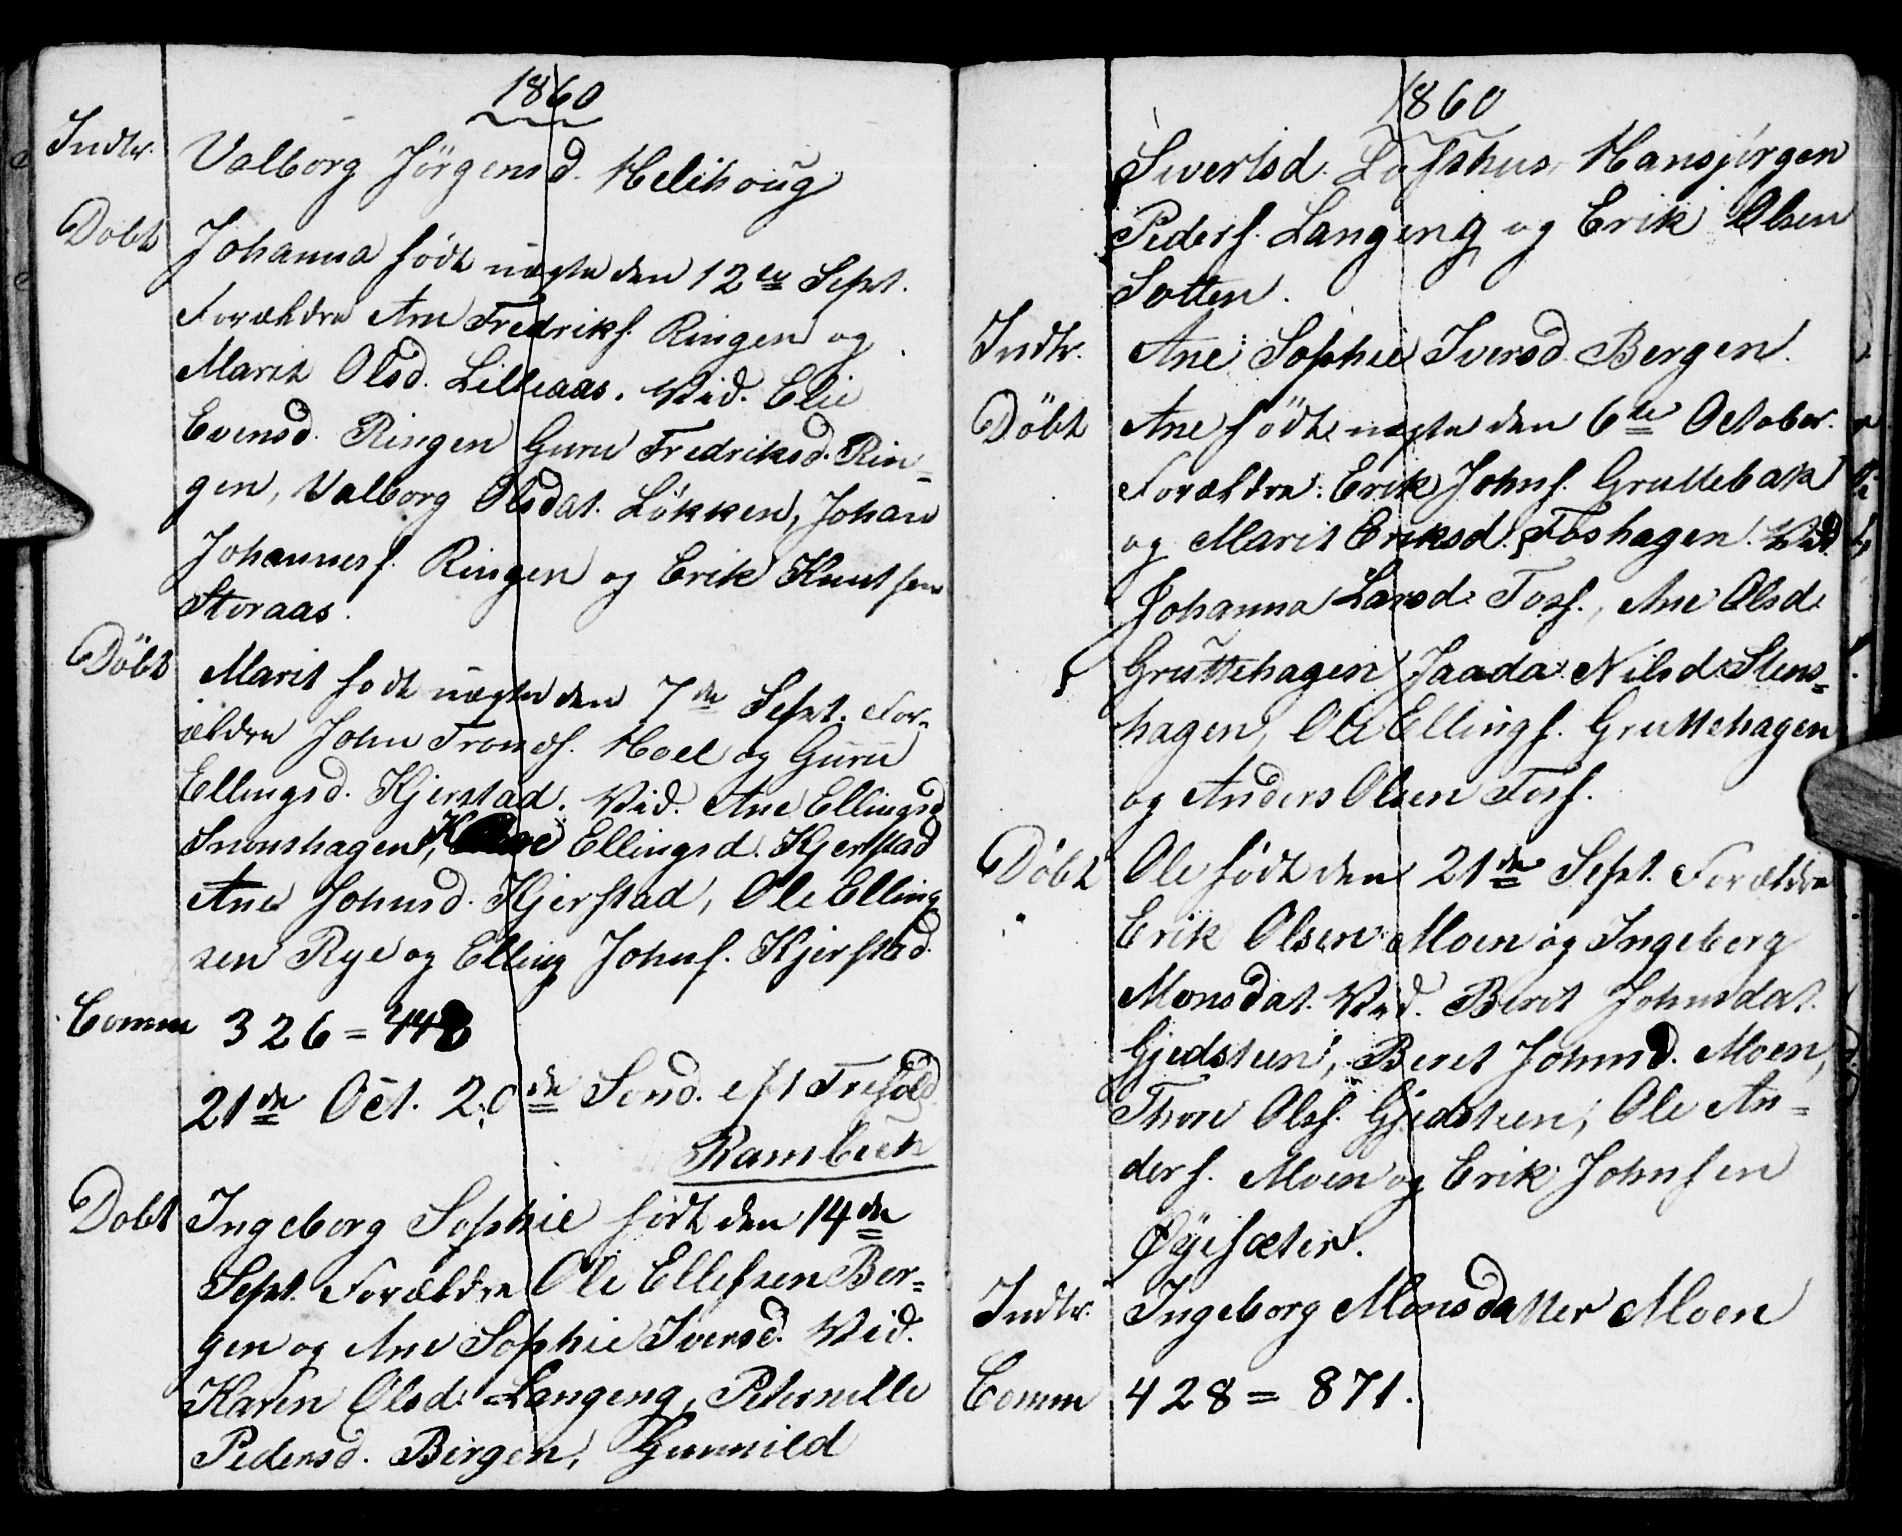 1860
Indtr. Valborg Jörgensd. Melihoug
Dobt Johanna födt uægte den 12te Sept.
Forældre Arn Fredriks. Ringen og
Marit Olsd. Lilleaas. Vid. Elie
Evensd. Ringen Guru Fredriksd. Rin=
gen, Valborg Olsdat. Lökken, Johan
Johannes. Ringen og Erik Knutsen
Storaas.
Döbt Marit födt uægte den 7de Sept. For-
ældre John Tronds. Moel og Guru
Ellingsd. Kjerstad. Vid. Ane Ellingsd
Snonshagen, Ellingsd. Kjerstad
Ane Johnsd. Kjerstad, Ole Elling
sen Rye og Elling Johns. Kjerstad.
Comm 326 = 448
21de Oct. 20de Sond. eft Trefold.
Rambech
Dobt Ingeborg Sophie födt den 14de
Sept. Forældre Ole Ellefsen Ber=
gen og Ane Sophie Iversd. Vid.
Karen Olsd. Langeng, Peternille
Pedersd. Bergen, Gunnild
1860
Sivertsd. Loftshus, Hansjörgen
Peders. Langeng og Erik Olsen
Sotten.
Indtr. Ane Sophie Iversd. Bergen.
Döbt Ane födt uægte den 6te October.
Forældre: Erik Johns. Gruttebak
og Marit Eriksd. Foshagen. Vid.
Johanna Larsd. Foss., Ane Olsd.
Gruttehagen Jaada Nilsd. Stens=
hagen, Ole Ellings. Gruttehagen
og Anders Olsen Foss.
Döbt Ole födt den 21de Sept. Forældre
Erik Olsen Moen og Ingeborg
Monsdat. Vid. Berit Johnsdat.
Gjedsteen, Beret Johnsd. Moen,
Thore Olss. Gjedsteen, Ole An=
ders. Moen og Erik Johnsen
Øyesæter.
Indtr. Ingeborg Monsdatter Moen
Comm 428 = 871.